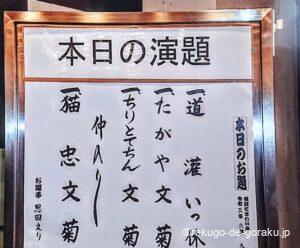 本日の演題
本日のお題
一道灌 いっ休
一たがや 文菊
一ちりとてちん 文菊
仲入り
一猫忠 文菊
お囃子 恩田えり
©rakugo-de-goraku.jp